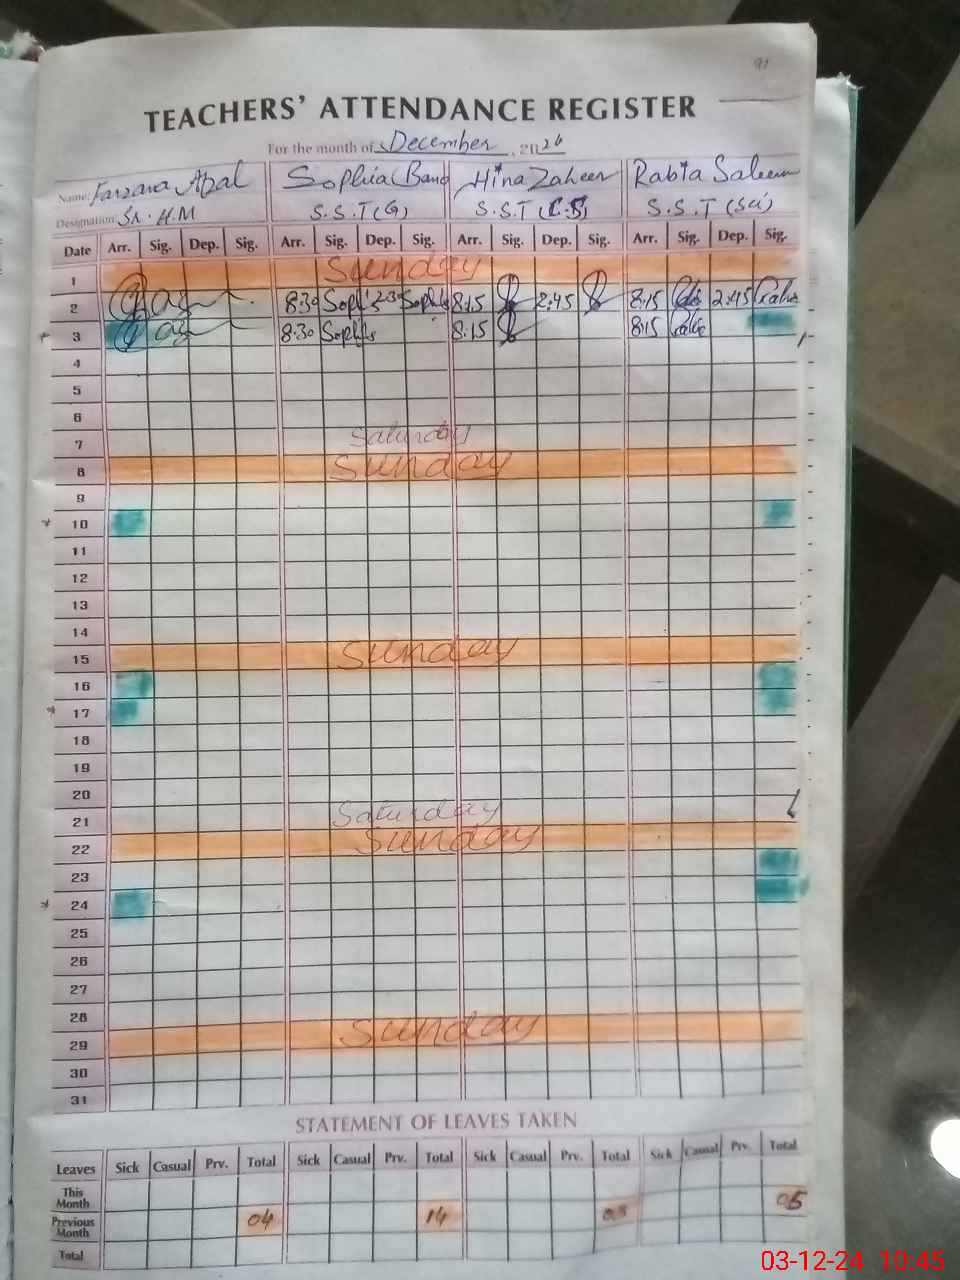 91
TEACHERS' ATTENDANCE REGISTER
For the month of December, 2024
Name: Farzana Afzal Sophia Bano Hina Zaheer Rabia Saleem
Designation: Sr. H.M S.S.T (G) S.S.T (C.S) S.S.T (Sci)
Date Arr. Sig. Dep. Sig. Arr. Sig. Dep. Sig. Arr. Sig. Dep. Sig. Arr. Sig. Dep. Sig.
1 Sunday
2 8:30 Sophia 8:15 2:45 8:15 2:45 Rabia
3 8:30 Sophia 8:15 8:15
4
5
6
7 Saturday
8 Sunday
9
10
11
12
13
14
15 Sunday
16
17
18
19
20
21 Saturday
22 Sunday
23
24
25
26
27
28
29 Sunday
30
31
STATEMENT OF LEAVES TAKEN
Leaves Sick Casual Prv. Total Sick Casual Prv. Total Sick Casual Prv. Total Sick Casual Prv. Total
This Month
Previous Month 04 14 05
Total
03-12-24 10:45